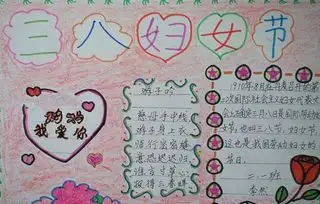 三八妇女节
妈妈
我爱你
游子吟
慈母手中线
游子身上衣
临行密密缝
意恐迟迟归
谁言寸草心
报得三春晖
1910年8月在丹麦召开的第
二次国际社会主义妇女代表大
会上确定三月八日是国际劳动妇
女节,也叫三八节,妇女节,
这也是我国劳动妇女的
节日。
二、一班
李然